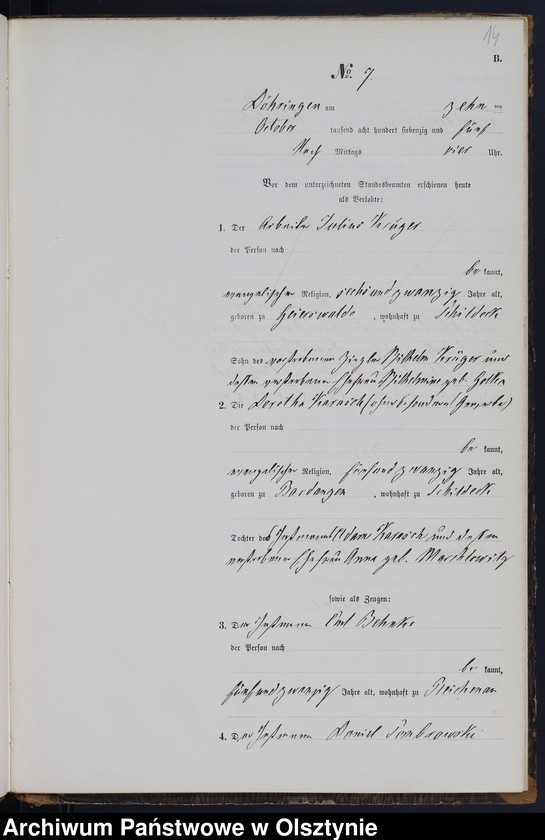 14
B.
No. 7.
Döhringen am zehn ten
October tausend acht hundert siebenzig und fünf
Nach Mittags vier Uhr.
Vor dem unterzeichneten Standesbeamten erschienen heute
als Verlobte:
1. Der Arbeiter Julius Krüger
der Person nach
be kannt,
evangelischer Religion, sechsundzwanzig Jahre alt,
geboren zu Geierswalde, wohnhaft zu Schildeck
Sohn des verstorbenen Ziegler Wilhelm Krüger und
dessen verstorbenen Ehefrau Wilhelmine geb.
2. Die Dorothea Karasch (ohne besonderen Gewerbe)
der Person nach
be kannt,
evangelischer Religion, fünfundzwanzig Jahre alt,
geboren zu Bardungen, wohnhaft zu Schildeck
Tochter des Instmann Adam Karasch und dessen
verstorbenen Ehefrau Anna geb.
sowie als Zeugen:
3. Der Instmann Carl Behnke
der Person nach
be kannt,
fünfundzwanzig Jahre alt, wohnhaft zu Reichenau
4. Der Instmann Daniel Dombrowski
Archiwum Państwowe w Olsztynie